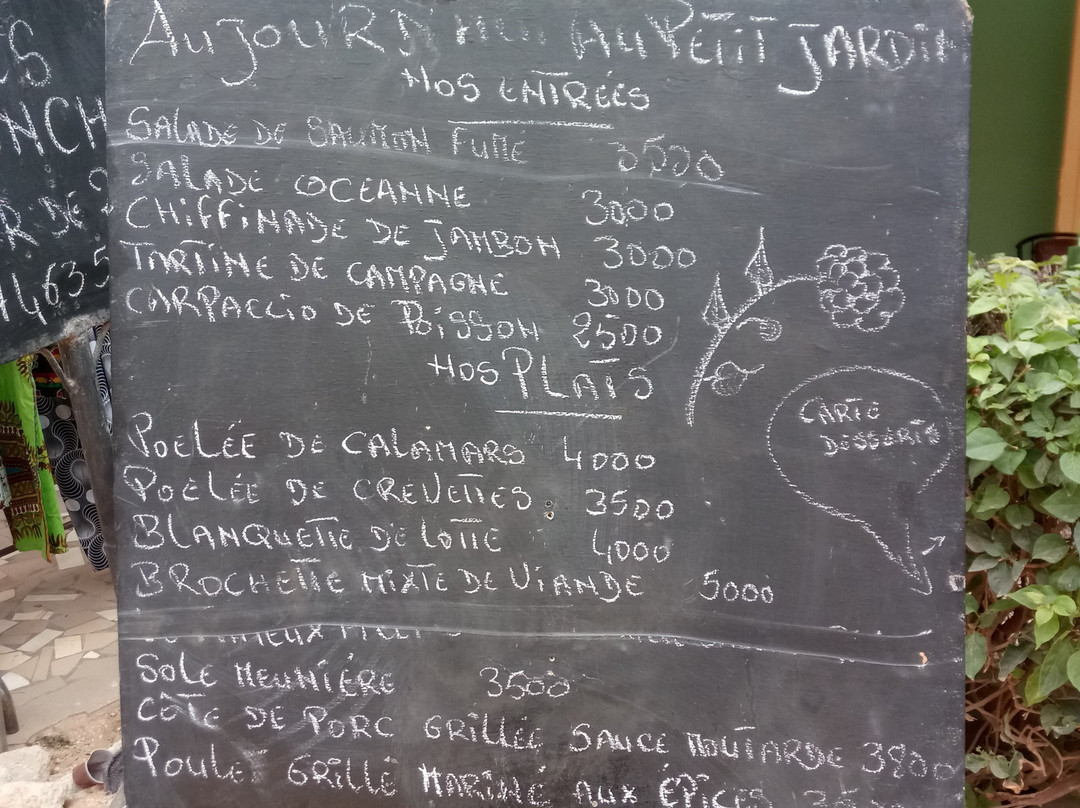 AUJOURD'HUI AU PETIT JARDIN
NOS ENTRÉES
SALADE DE SAUMON FUMÉ 3500
SALADE OCEANNE 3000
CHIFFINADE DE JAMBON 3000
TARTINE DE CAMPAGNE 3000
CARPACCIO DE POISSON 2500
NOS PLATS
POELÉE DE CALAMARS 4000
POELÉE DE CREVETTES 3500
BLANQUETTE DE LOTTE 4000
BROCHETTE MIXTE DE VIANDE 5000
SOLE MEUNIÈRE 3500
CÔTE DE PORC GRILLÉE SAUCE MOUTARDE 3800
POULET GRILLÉ MARINÉ AUX ÉPICES
CARTE
DESSERTS
NCH
R DE
4635